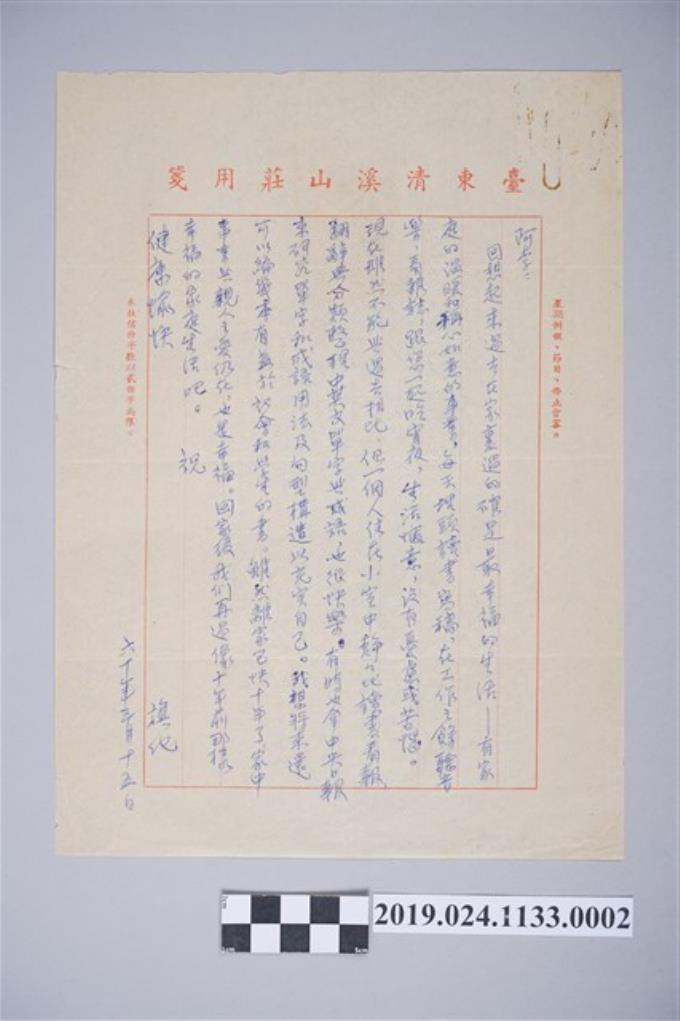 臺東清溪山莊用箋
星期例假、節日、停止會客。
阿李:
回想起來過去在家裏過的確是最幸福的生活──有家
庭的溫暖和稱心如意的事業,每天埋頭讀書寫稿,在工作之餘聽音
樂,看報誌,跟您一起吃宵夜,生活愜意,沒有憂慮或苦惱。
現在雖然不能與過去相比,但一個人住在小室中靜靜地讀書看報
翻辭典分類整理中英文單字與成語,也很快樂。有時也拿中央日報
來研究單字和成語用法及句型構造以充實自己。我想將來還
可以編幾本有益於社會和學生的書。雖然離家已快十年了家中
事業與親人之愛仍在,也是幸福。回家後我們再過像十年前那樣
幸福的家庭生活吧。 祝
健康愉快
旗化
六十年三月十五日
來往信件字數以貳佰字為限。
2019.024.1133.0002